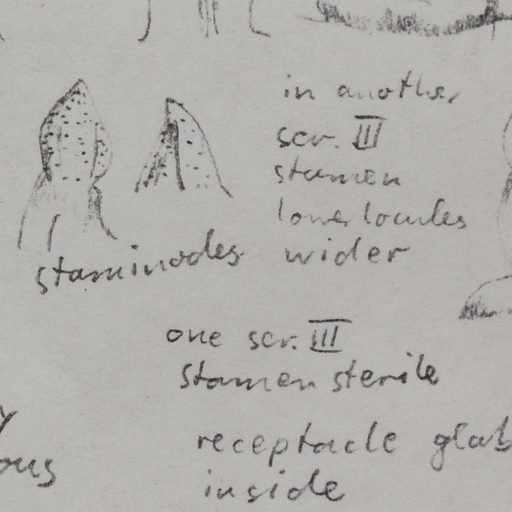 in another
scr. III
stamen
lower locules
wider
staminodes
one scr. III
stamen sterile
receptacle glab
inside
y
ous